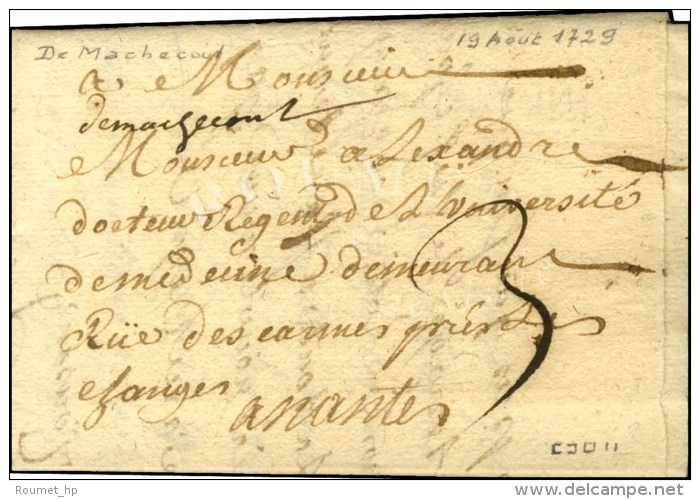 De Machecoul
19 Août 1729
a Monsieur
demachecoul
Monsieur alexandre
docteur Regent de L'université
de medecine demeurant
Rüe des carmes près Les
changes
a nantes
3
Roumet_hp
www.delcampe.net